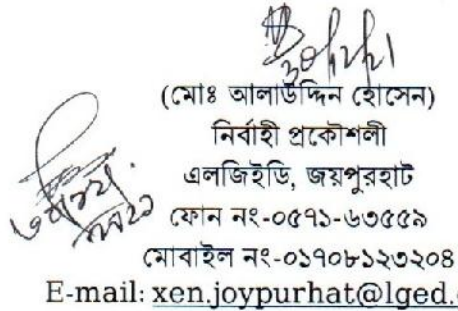 (মোঃ আলাউদ্দিন হোসেন)
নির্বাহী প্রকৌশলী
এলজিইডি, জয়পুরহাট
ফোন নং-০৫৭১-৬৩৫৫৯
মোবাইল নং-০১৭০৮১২৩২০৪
E-mail: xen.joypurhat@lged.